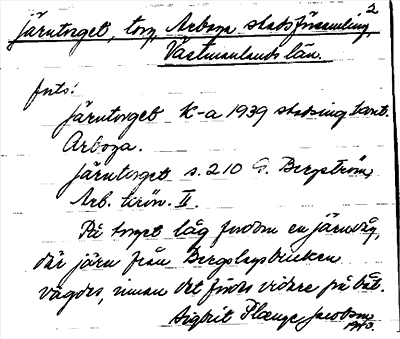 2
Järntorget, torg, Arboga stadsförsamling,
Västmanlands län.
forts:
Järntorget K-a 1939 stadsing. kont.
Arboga.
Järntorget s. 210 G. Bergström,
Arb. krön. II.
På torget låg fordom en järnvåg,
där järn från Bergslagsbruken
vägdes, innan det fördes vidare på båt.
Sigbrit Plænge Jacobson
1940.